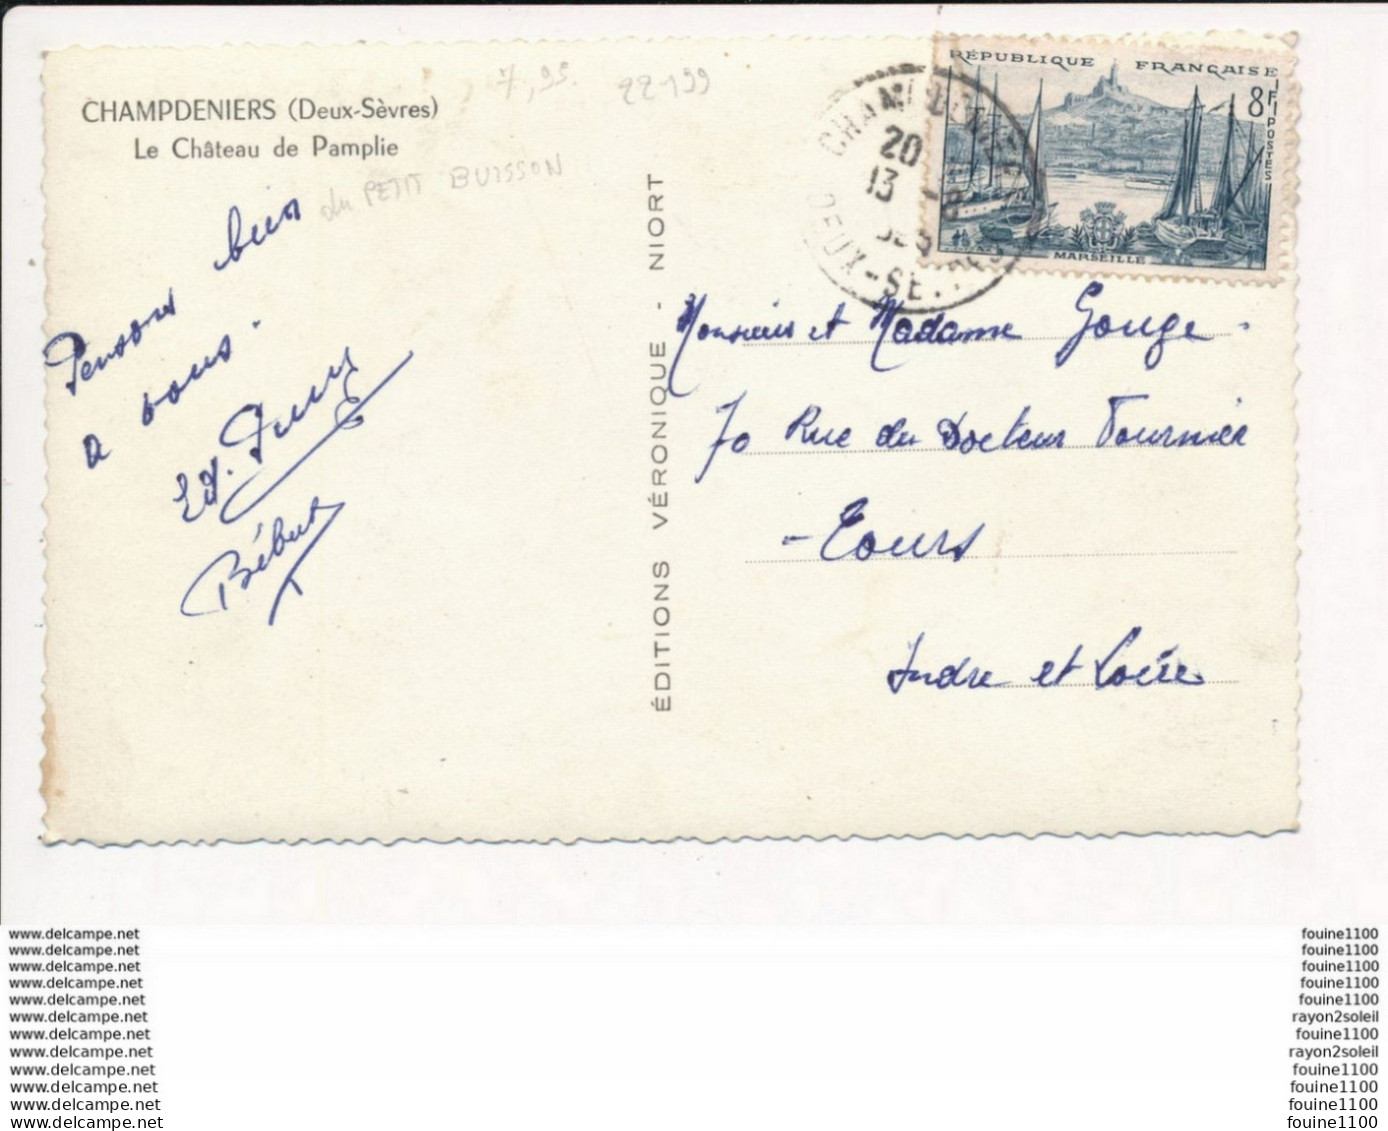 CHAMPDENIERS (Deux-Sèvres)
Le Château de Pamplie
du PETIT BUISSON
7,95.
22199
Pensons bien
a vous.
Bébert
ÉDITIONS VÉRONIQUE - NIORT
RÉPUBLIQUE FRANÇAISE
8F
POSTES
MARSEILLE
20
13 -8
DEUX-SÈVRES
Monsieur et Madame Gouge
70 Rue du Docteur Fournier
- Tours
Indre et Loire
www.delcampe.net
www.delcampe.net
www.delcampe.net
www.delcampe.net
www.delcampe.net
www.delcampe.net
www.delcampe.net
www.delcampe.net
www.delcampe.net
www.delcampe.net
www.delcampe.net
www.delcampe.net
fouine1100
fouine1100
fouine1100
fouine1100
fouine1100
rayon2soleil
fouine1100
rayon2soleil
fouine1100
fouine1100
fouine1100
fouine1100